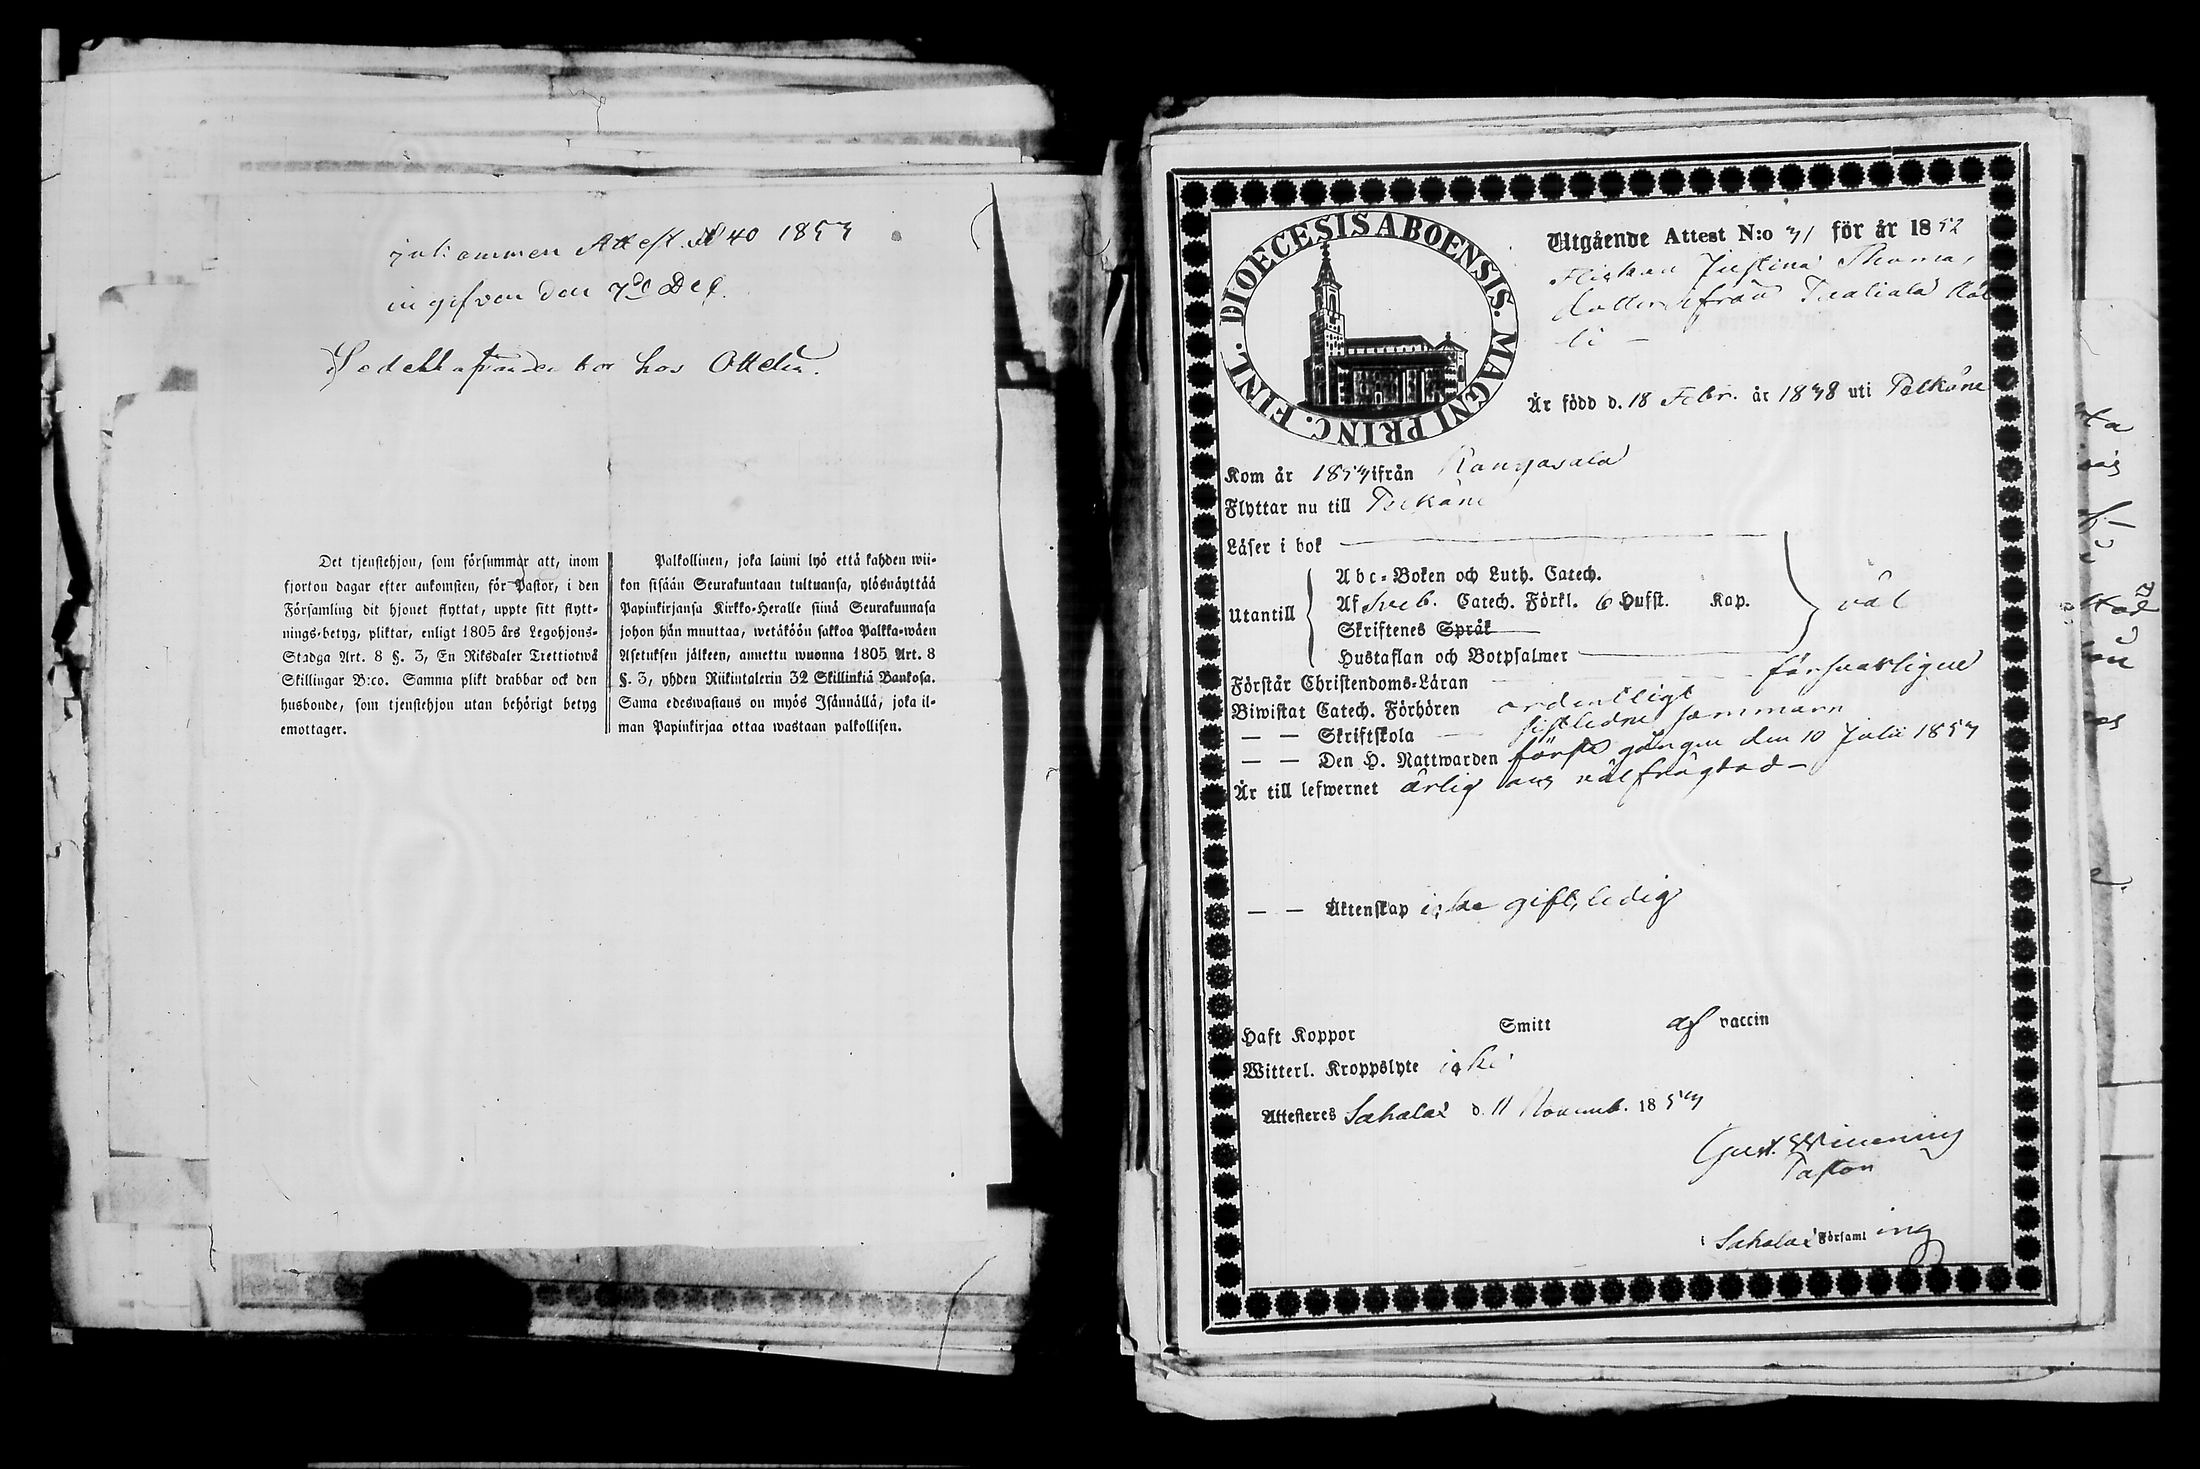 inkommen Attest № 40 1853
ingifven den 7de Dec.
bor hos Ottela.
Det tjenstehjon, som försummar att, inom
fjorton dagar efter ankomsten, för Pastor, i den
Församling dit hjonet flyttat, uppte sitt flytt-
nings-betyg, pliktar, enligt 1805 års Legohjons-
Stadga Art. 8 §. 3, En Riksdaler Trettiotwå
Skillingar B:co. Samma plikt drabbar ock den
husbonde, som tjenstehjon utan behörigt betyg
emottager.
Palkollinen, joka laimi lyö että kahden wii-
kon sisään Seurakuntaan tultuansa, ylösnäyttää
Papinkirjansa Kirkko-Heralle siinä Seurakunnasa
johon hän muuttaa, wetäköön sakkoa Palkka-wäen
Asetuksen jälkeen, annettu wuonna 1805 Art. 8
§. 3, yhden Riikintalerin 32 Skillinkiä Bankosa.
Sama edeswastaus on myös Isännällä, joka il-
man Papinkirjaa ottaa wastaan palkollisen.
DIOECESIS ABOENSIS. MAGNI PRINC. FINL.
Utgående Attest N:o 31 för år 1852
Flickan Justina Thomas
dotter ifrån
Är född d. 18 Febr. år 1838 uti Pelkäne
Kom år 1853 ifrån Kangasala
Flyttar nu till Pelkäne
Läser i bok
Utantill
Abc-Boken och Luth. Catech.
Af Sveb. Catech. Förkl. 6 Hufst. Kap.
Skriftenes Språk
Hustaflan och Botpsalmer
väl
Förstår Christendoms-Läran försvarligen
Biwistat Catech. Förhören ordentligt
— — Skriftskola sistledne sommarn
— — Den H. Nattwarden första gången den 10 Julii 1853
Är till lefwernet ärlig och välfrägdad
— — Äktenskap icke gift, ledig
Haft Koppor Smitt af vaccin
Witterl. Kroppslyte icke
Attesteres Sahalax d. 11 Novemb. 1853
Gust. Winning
Pastor
i Sahalax Församling